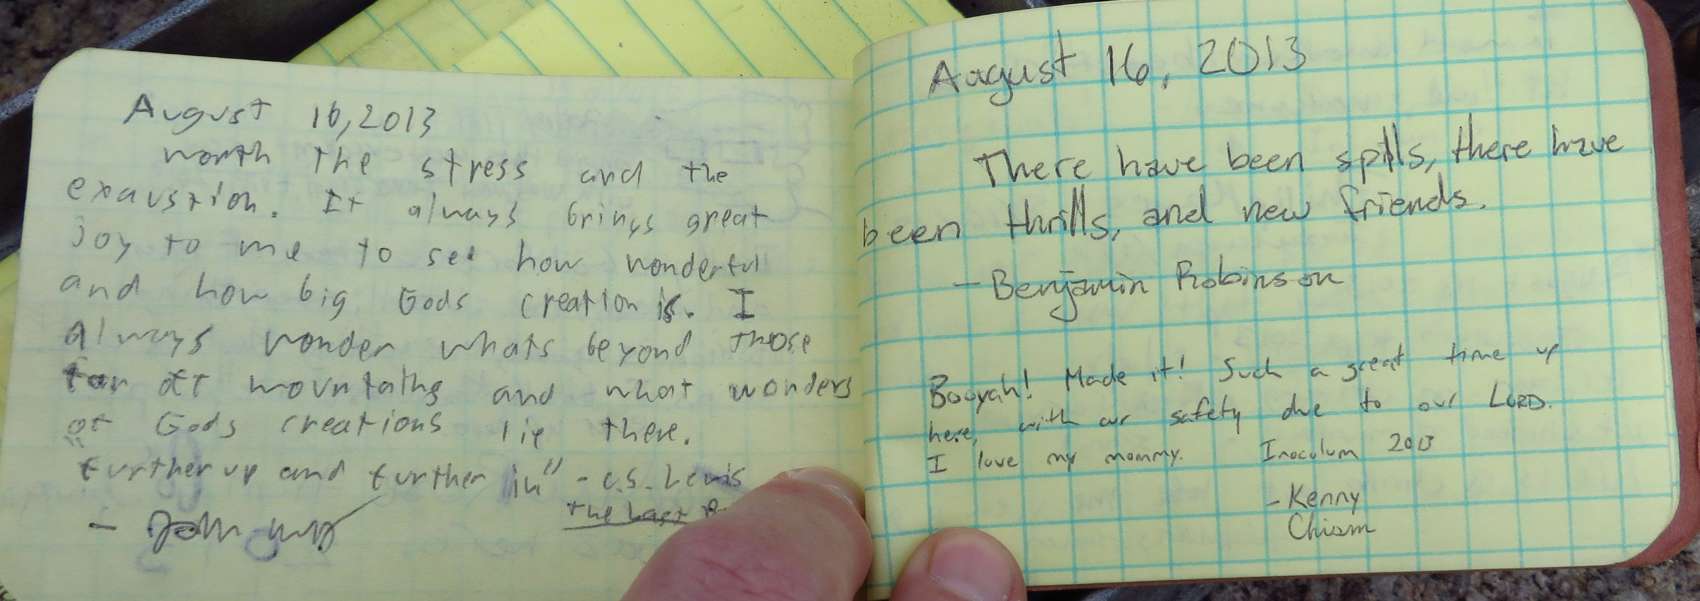 August 16, 2013
worth the stress and the
exaustion. It always brings great
joy to me to see how wonderful
and how big Gods creation is. I
always wonder whats beyond those
far off mountains and what wonders
of Gods creations lie there.
"further up and further in" - C.S. Lewis
The Last
- John
August 16, 2013
There have been spills, there have
been thrills, and new friends.
- Benjamin Robinson
Booyah! Made it! Such a great time up
here, with our safety due to our LORD.
I love my mommy. Inoculum 2013
- Kenny
Chism